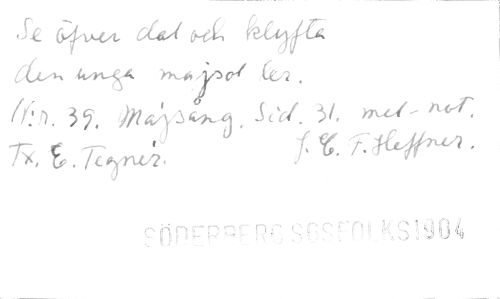 Se öfver dal och klyfta
den unga majsol ler.
N:r. 39. Majsång. Sid. 31. mel-not.
Tx. E. Tegnér. f. E. F. Heffner.
SÖDERBERG SGSFOLKS1904